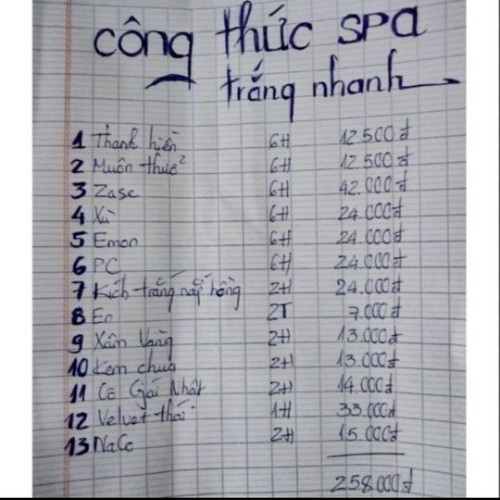 công thức SPA
trắng nhanh
1 Thanh hiền 6H 12.500đ
2 Muôn thuở² 6H 12.500đ
3 Zase 6H 42.000đ
4 Xù 6H 24.000đ
5 Emon 6H 24.000đ
6 PC 6H 24.000đ
7 Kích trắng nắp hồng 2H 24.000đ
8 En 2T 7.000đ
9 Xâm Vàng 2H 13.000đ
10 Kem chua 2H 13.000đ
11 Cô Gái Nhật 2H 14.000đ
12 Velvet thái 1H 33.000đ
13 NaCo 2H 15.000đ
258.000đ